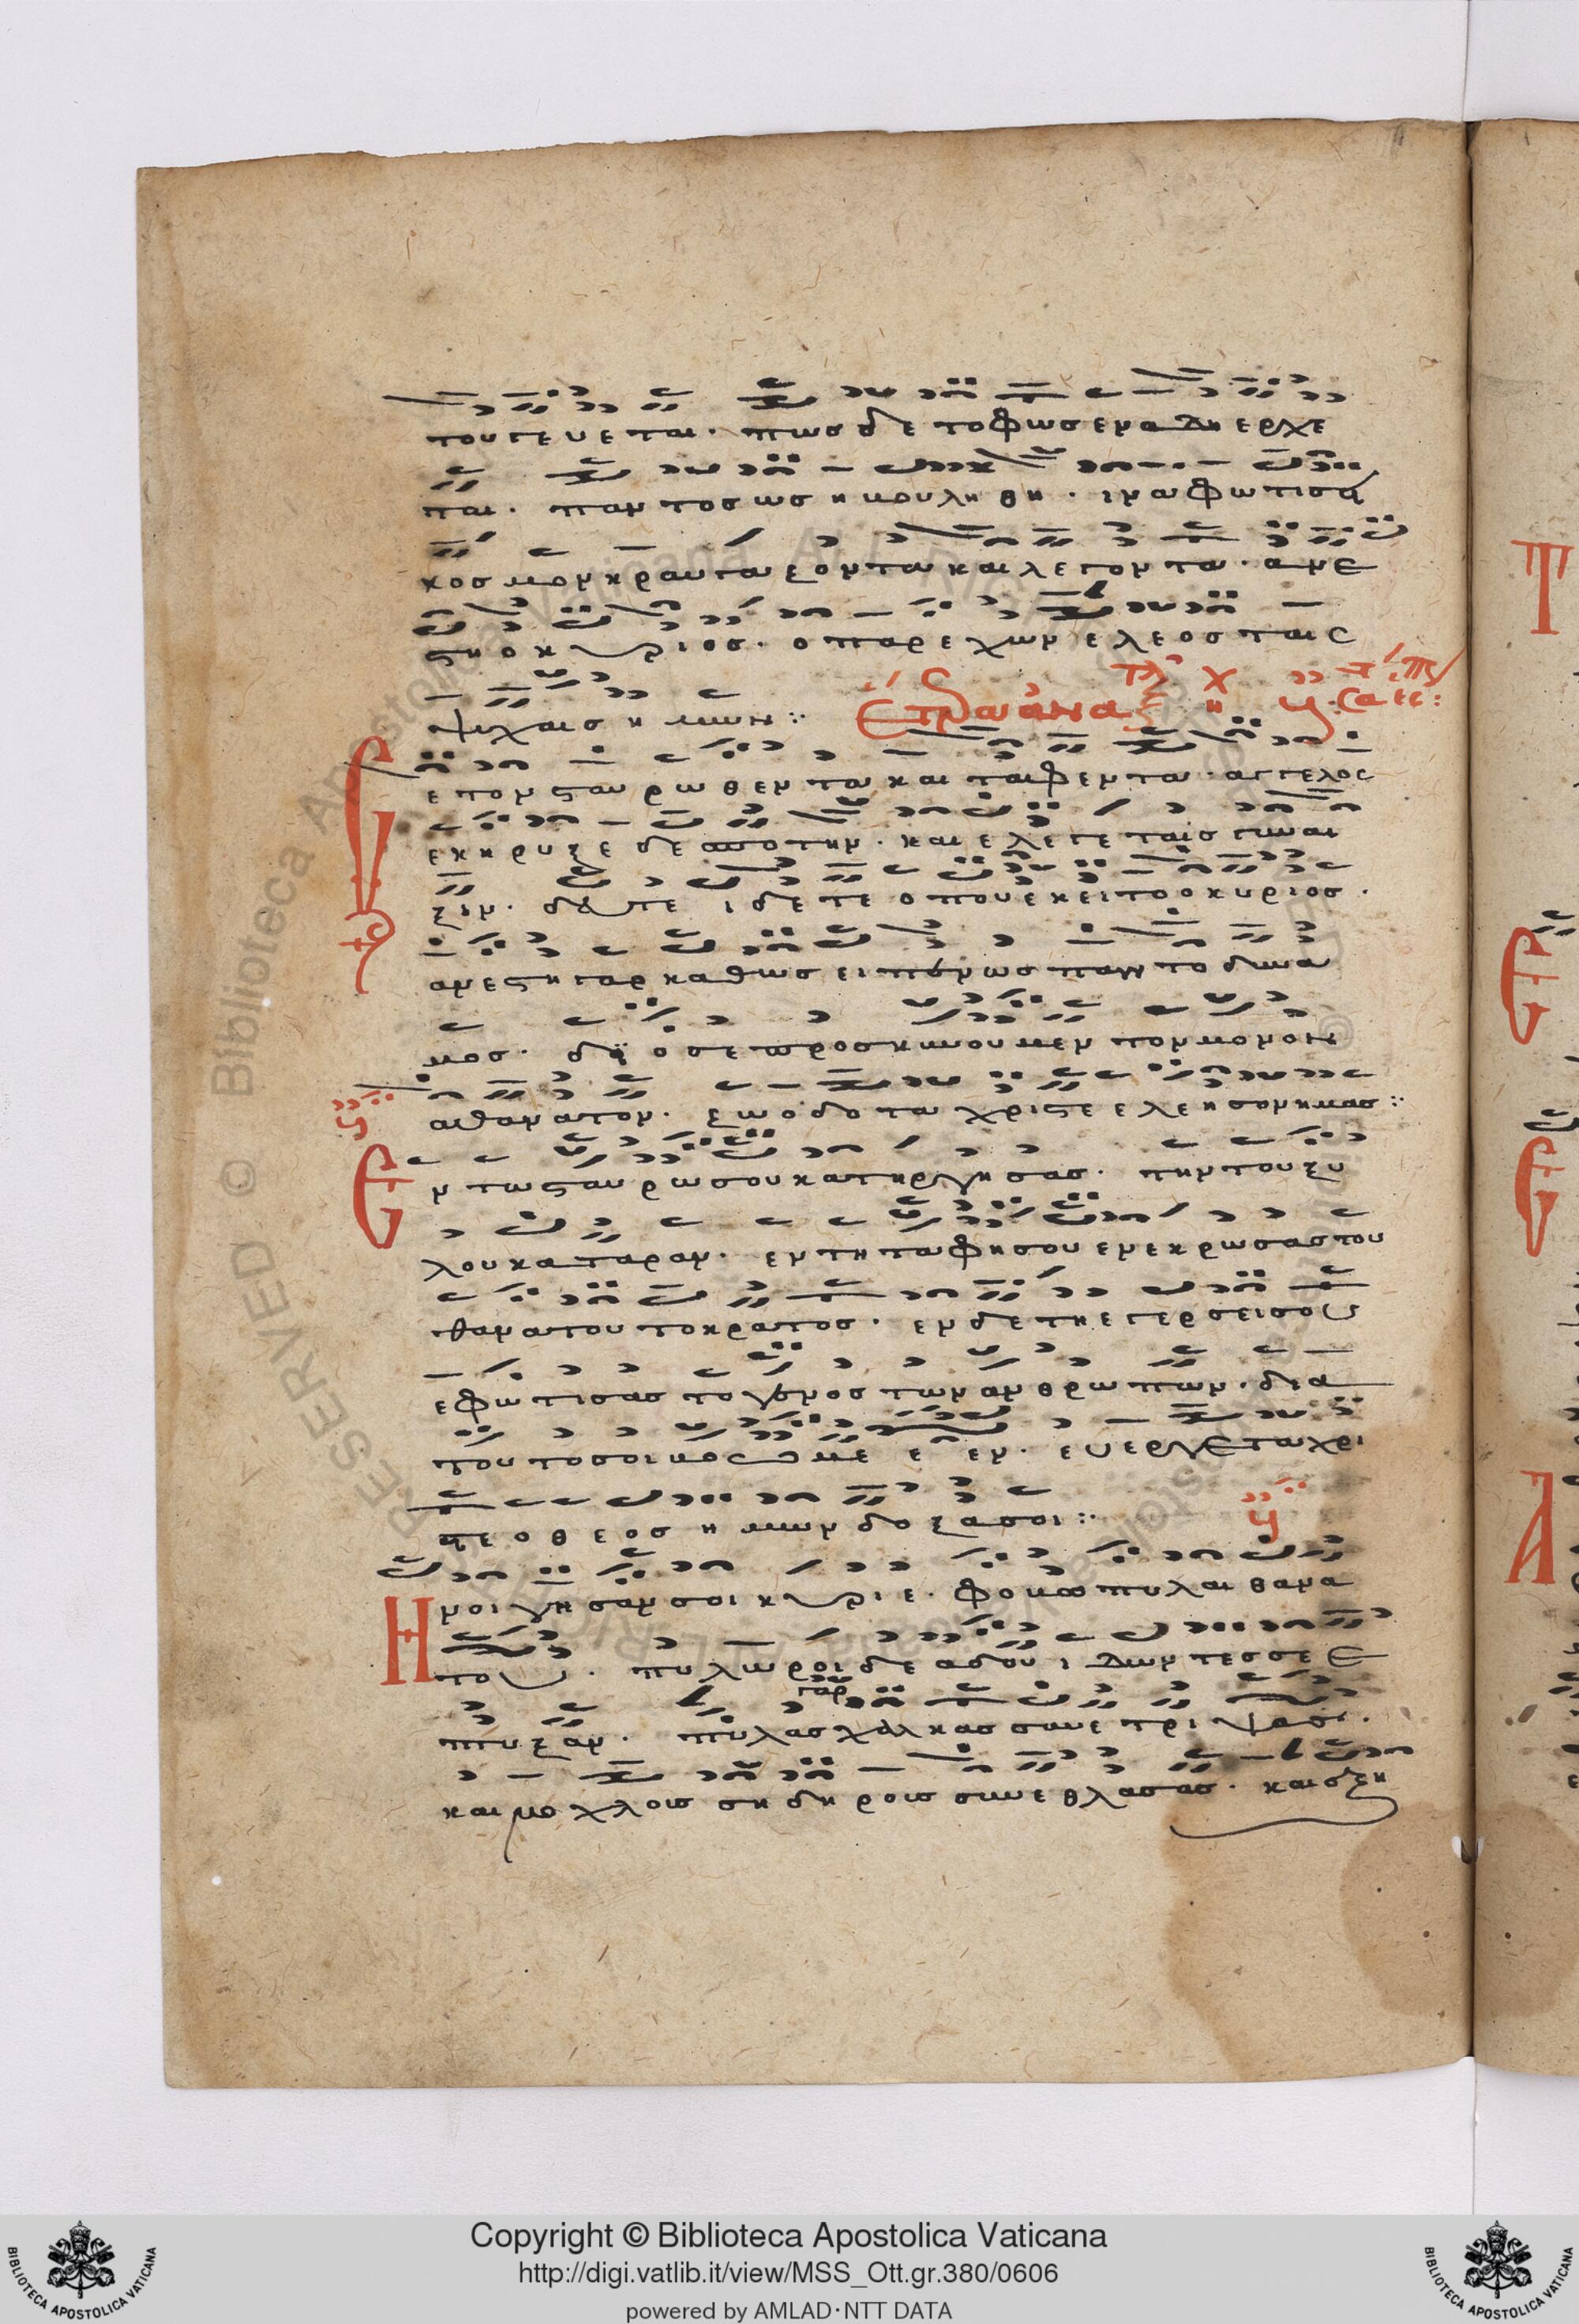 του γενεται · πως δε το φως εν αδη ερχε
ται · παντοσωσ η μουληθη · ινα φωτισα
κοσμον κραυγαζοντα και λεγοντα · ανε
ϛη ο κυριος · ο παρεχων ελεος ταις
ψυχαις η μων :·
ε τον ϛαυρωθεντα και ταφεντα · αγγελος
εκηρυξε δεσποτην · και ελεγε ταις γυναι
ξιν · δευτε ιδετε οπου εκειτο ο κυριος ·
ανεϛη γαρ καθως ειπεν ως παντοδυνα
μος · διο σε προσκυνουμεν τον μονον
αθανατον · ζωοδοτα χριϛε ελεησον ημας :·
Εν τω ϛαυρω σου κατηργησας · την του ξυ
λου καταραν · εν τη ταφη σου ενεκρωσας του
θανατου το κρατος · εν δε τη εγερσει σου
εφωτισας το γενος των ανθρωπων · δια
τουτο σοι βοωμεν · ευεργετα χρι
ϛε ο θεος η μων δοξα σοι :·
Ηνοιγησαν σοι κυριε · φοβω πυλαι θανα
του · πυλωροι δε αδου ιδοντες σε ε
πτυξαν · πυλας γαρ χαλκας συνετριψας ·
και μοχλους σηδηρους συνεθλασας · και εξη
Copyright © Biblioteca Apostolica Vaticana
http://digi.vatlib.it/view/MSS_Ott.gr.380/0606
powered by AMLAD·NTT DATA